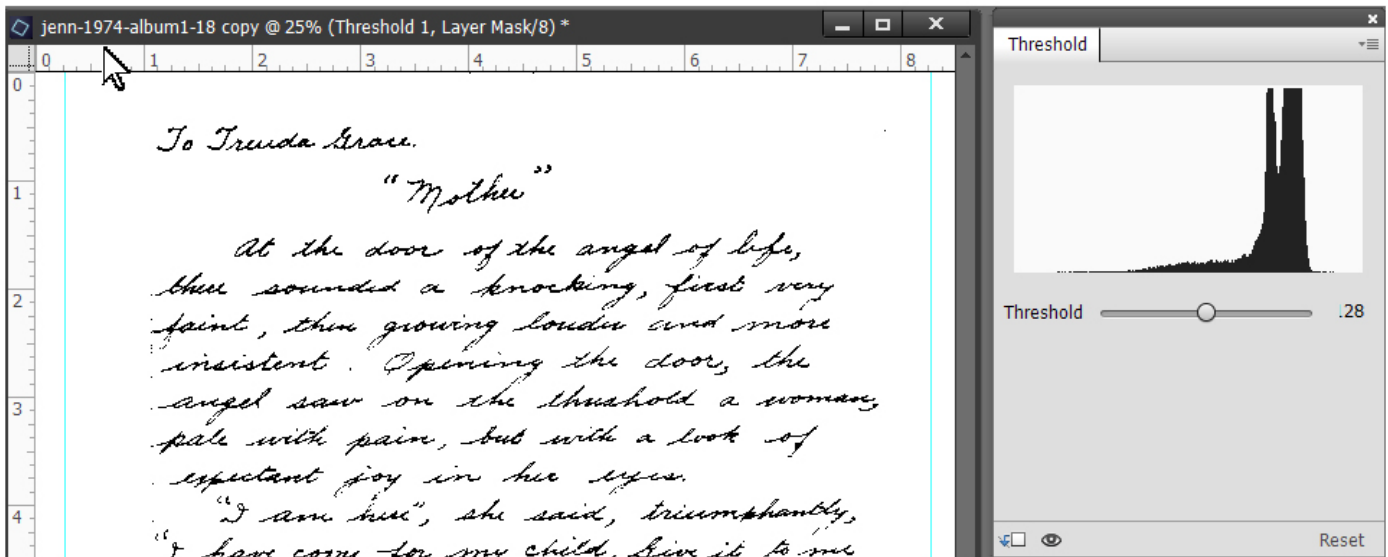 jenn-1974-album1-18 copy @ 25% (Threshold 1, Layer Mask/8) *
0 1 2 3 4 5 6 7 8
Threshold
0
To Treuda Grace.
"Mother"
1
At the door of the angel of life,
there sounded a knocking, first very
2
faint, then growing louder and more
Threshold .28
insistent. Opening the door, the
angel saw on the threshold a woman,
3
pale with pain, but with a look of
expectant joy in her eyes.
"I am here", she said, triumphantly,
4
"I have come for my child. Give it to me
Reset